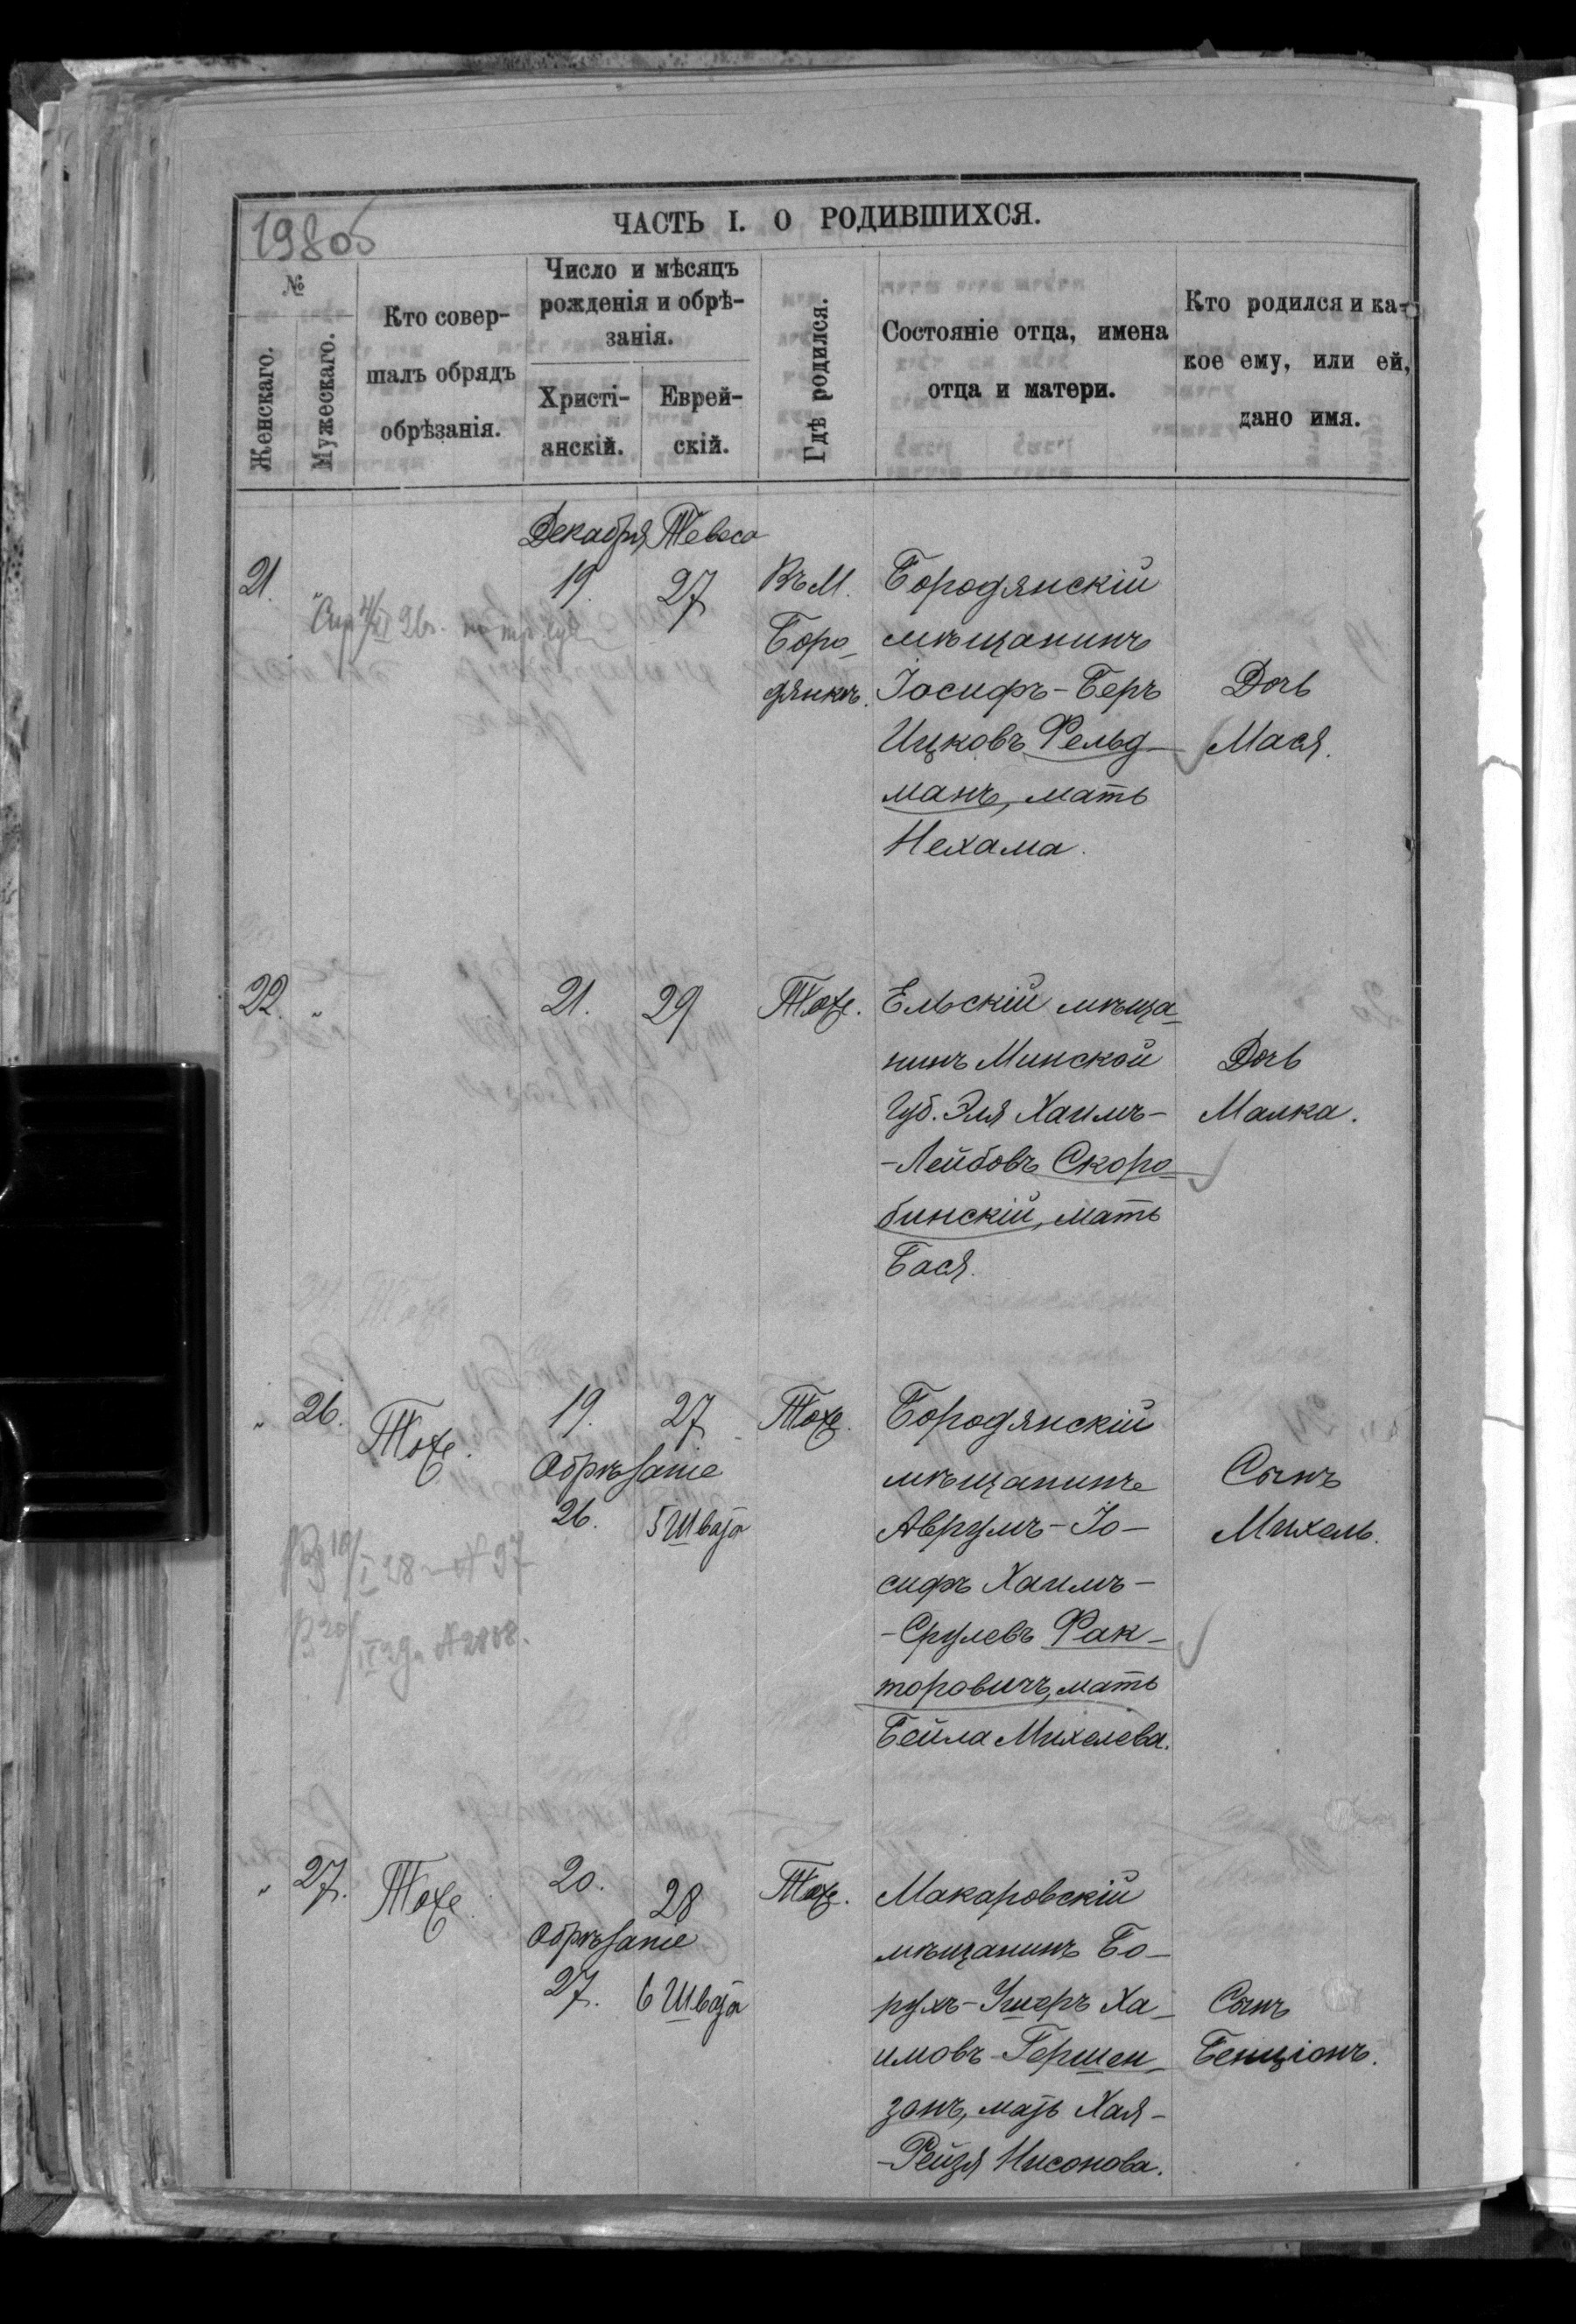 198об
ЧАСТЬ I. О РОДИВШИХСЯ.
№
Женскаго.
Мужескаго.
Кто совер-
шалъ обрядъ
обрѣзанія.
Число и мѣсяцъ
рожденія и обрѣ-
занія.
Христі-
анскій.
Еврей-
скій.
Гдѣ родился.
Состояніе отца, имена
отца и матери.
Кто родился и ка-
кое ему, или ей,
дано имя.
Декабря Тевеса
21. " 19. 27
Въ М.
Боро-
дянкѣ.
Бородянскій
мѣщанинъ
Іосифъ-Беръ
Ицковъ Фельд-
манъ, мать
Нехама.
Дочь
Мася.
22. " 21. 29 Тоже.
Ельскій мѣща-
нинъ Минской
Губ. Эля Хаимъ-
-Лейбовъ Скоро-
бинскій, мать
Бася.
Дочь
Малка.
" 26. Тоже. 19. 27 Тоже.
Обрѣзаніе
26. 5 Швата
В 10/I 28 - № 97
В 20/ № 2808.
Бородянскій
мѣщанинъ
Аврумъ-Іо-
сифъ Хаимъ-
-Срулевъ Фак-
торовичъ, мать
Бейла Михелева.
Сынъ
Михель.
" 27. Тоже. 20. 28 Тоже.
Обрѣзаніе
27. 6 Швата
Макаровскій
мѣщанинъ Бо-
рухъ-Ушеръ Ха-
имовъ Гершен-
зонъ, мать Хая-
-Рейзя Нисонова.
Сынъ
Бенціонъ.